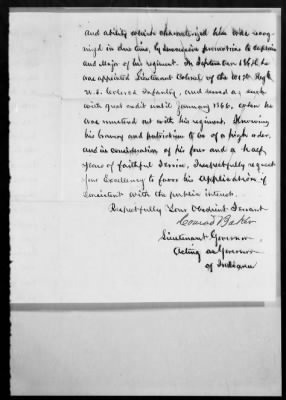 and ability which characterized him was recog-
nized in due time, by successive promotions to Captain
and Major of his regiment. In September 1864, he
was appointed Lieutenant Colonel of the Regt
U.S. Colored Infantry, and served as such
with great credit until January 1866, when he
was mustered out with his regiment. Knowing
his bravery and patriotism to be of a high order,
and in consideration of his four and a half
years of faithful service, I respectfully request
your Excellency to favor his application if
consistent with the public interest.
Respectfully Your Obedient Servant
Conrad Baker
Lieutenant Governor
Acting as Governor
of Indiana